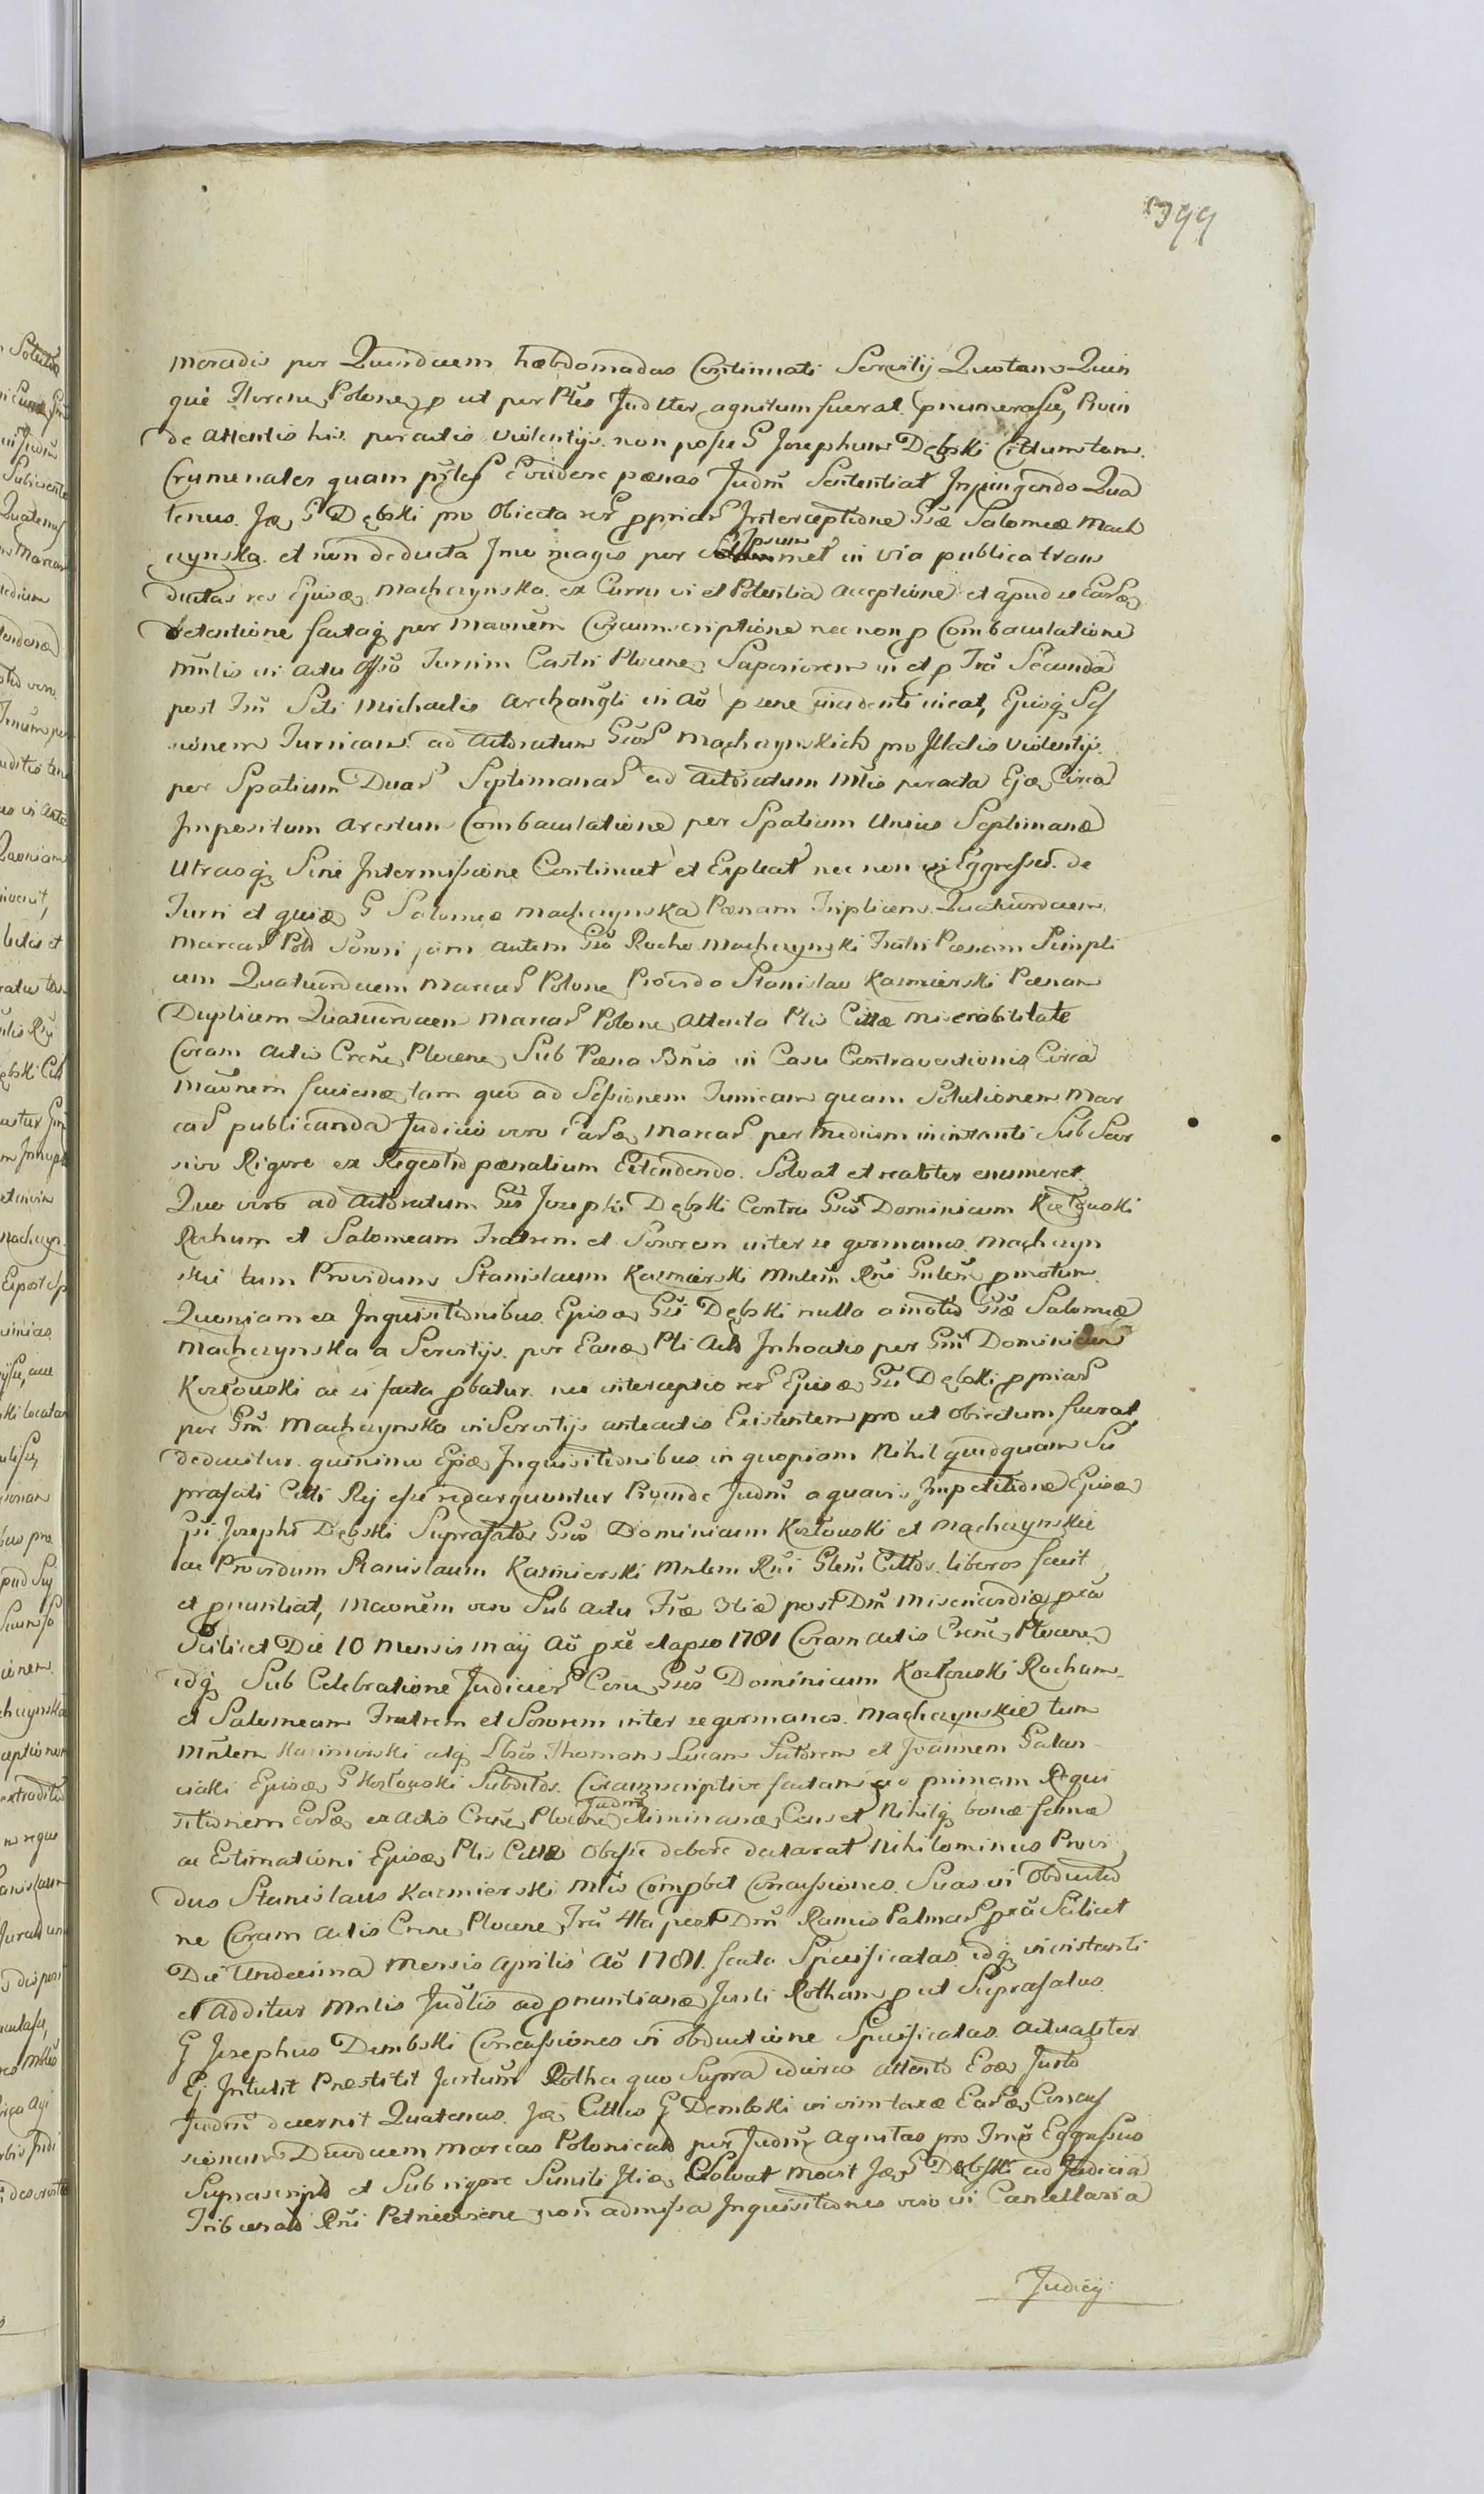 399
moradis per Quindecem hæbdomadas Continuati Servitij Quotans Quin
que Florene Polone p ut per Ptes Judtter agnitum fuerat pnumerasse, Proin
de attentis his peractis violentijs non posse G Josephum Dębski Cittum tam
Crumenales quam psles Evadere pænas Judm Sententiat Injungendo Qua
tenus Jæ G Dębski pro Obiecta rer ppriar Interceptione Gsæ Salomeæ Mach
czynska et non deducta Jmo magis per Ipsum met in via publica trans
ductas res Ejusæ Machczynska ex Curru vi et Potentia acceptione et apud se Earæ
detentione factaq per Maonem Circumscriptione nec non p Combaculatione
Mnlis in actu Offo Turrim Castri Plocene Superiorem in et p Fra Secunda
post Fm Scti Michaelis Archangli in Ao psene incidenti ineat, Ejusq Ses
sionem Turricam ad actoratum Gsor Machczynskich pro Illatis Violentijs
per Spatium Duar Septimanar ad actoratum Mlis peracta Ejæ Circa
Impositum Arestum Combaculatione per Spatium Unius Septimanæ
Utrasq Sine Intermissione Continuet et Expleat nec non in Eggressu de
Turri et quiæ G Salomeæ Machczynska Pænam Triplicem Quatuordecem
Marcar Pold Sorori jam autem Gso Rocho Machczynski Fratri Pænam Simpli
cem Quatuordecem Marcar Polone Provido Stanislao Kazmierski Pænam
Duplicem Quatuordecem Marcar Polone Attenta Ptis Cittæ Miserabilitate
Coram Actis Crene Plocene Sub Pæna Bnis in Casu Contraventionis Circa
Maonem faciene tam quo ad Sessionem Turricam quam Solutionem Mar
car publicanda Judicio vero Earæ Marcar per Medium in instanti Sub Seve
riore Rigore ex Regestro pænalium Extendendo Solvat et realiter enumeret
Quo vero ad Actoratum Gsi Josephi Dębski Contra Gsos Dominicum Kozłowski
Rochum et Salomeam Fratrem et Sororem inter se germanos Machczyn
skie tum Providum Stanislaum Kazmierski Mnlem Rni Gnlem pmotum
Quoniam ex Inquisitionibus Ejusæ Gsi Dębski nulla amotio Gsæ Salomeæ
Machczynska a Servitijs per Eanæ Pti Acto Inhoatis per Gm Dominicum
Kozłowski ac si facta pbatur nec interceptio rer Ejusæ Gsi Dębski ppriar
per Gm Machczynska in Servitijs anteactis Existentem pro ut obiectum fuerat
deducitur quinimo Ejæ Inquisitionibus in quopiam Nihil quidquam Su
prafati Citti Rej esse redarguuntur Proinde Judm a quavis Impetitione Ejusæ
Gsi Josephi Dębski Suprafatos Gsos Dominicum Kozłowski et Machczynskie
ac Providum Stanislaum Kazmierski Mnlem Rni Glem Cittos liberos facit
et pnuntiat, Maonem vero Sub Actu Fræ 3tiæ post Dm Misericordiæ pxa
Scilicet Die 10 Mensis Maij Ao pxe elapso 1781 Coram Actis Crene Plocene
idq Sub Celebratione Judicior Cone Gsos Dominicum Kozłowski Rochum
et Salomeam Fratrem et Sororem inter se germanos Machczynskie tum
Mnlem Kazmierski atq Lbos Thomam Lucam Sutorem et Joannem Galan
ciaki Ejusæ G Kozłowski Subditos Circumscriptive factam ad primam Requi
sitionem Eoræ ex Actis Crene Plocene Judm eliminanæ Censet Nihilq bonæ famæ
ac Estimationi Ejusæ Ptis Cittæ obesse debere declarat Nihilominus Provi
dus Stanislaus Kazmierski Mlis Compbet Concussiones Suas in Obductio
ne Coram Actis Crene Plocene Fra 4ta post Dm Ramis Palmar pxa Scilicet
Die Undecima Mensis Aprilis Ao 1781 facta Specificatas idq in instanti
et additur Mnlis Judlis ad pnuntianæ Jurti Rotham p ut Suprafatus
G Josephus Dembski Concussiones in obductione Specificatas actualiter
Ej Intulit Præstitit Jurtum Rotha quo Supra idcirco attento Eoæ Jurto
Judm decernit Quatenus Jæ Cittus G Dembski in vim taxæ Earæ Concus
sionum Duodecem Marcas Polonicales per Judm Agnitas pro Tmo Eggressus
Suprascripto et Sub rigore Simili Jtiæ Exolvat Mocit Jæ G Dębski ad Judicia
Tribunalis Rni Petricoviene non admissa Inquisitiones vero in Cancellaria
Judicij